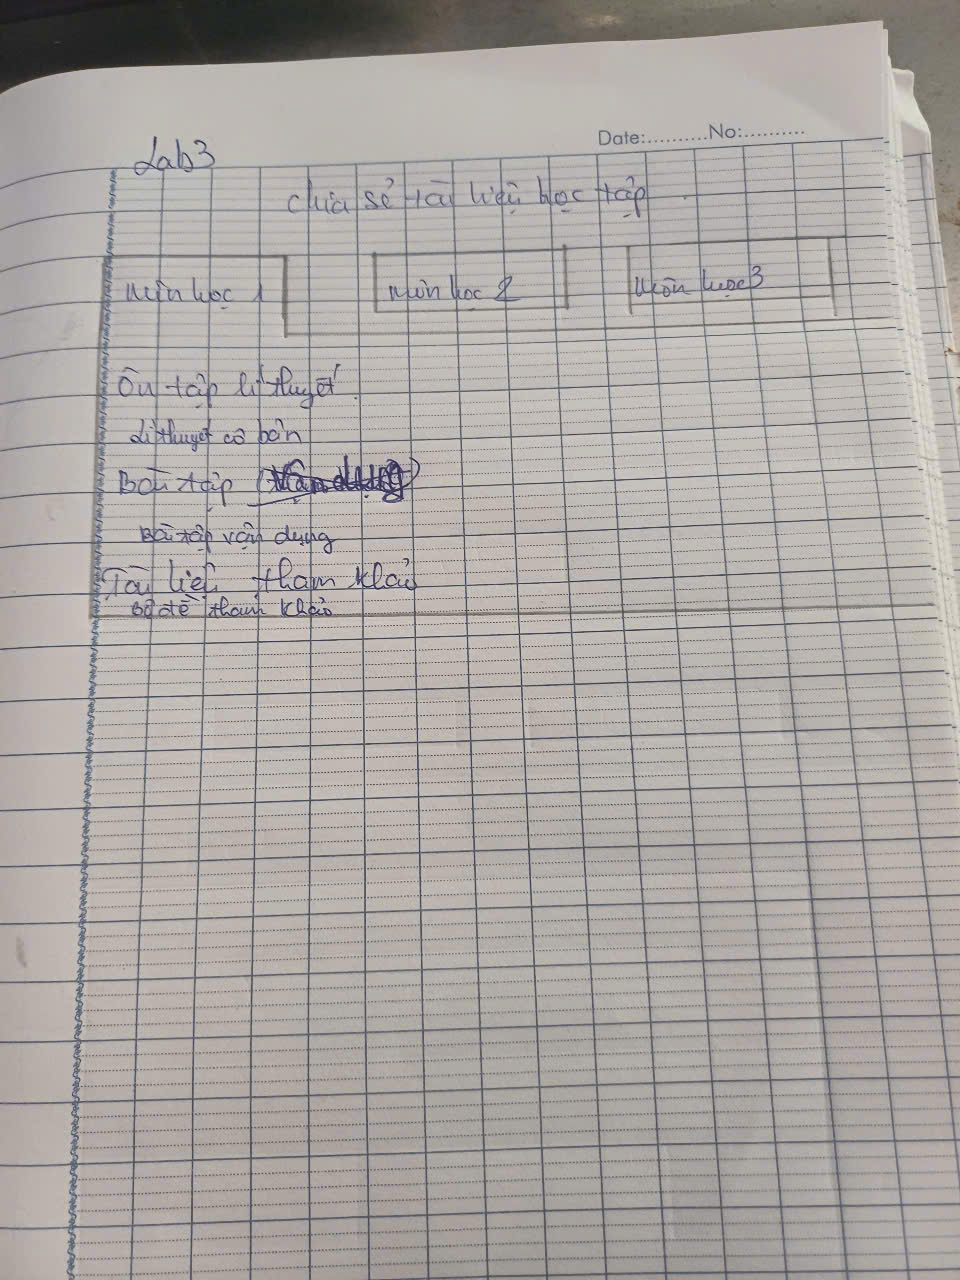 Date:..........No:..........
Lab3
chia sẻ tài liệu học tập
Môn học 1 Môn học 2 Môn học 3
Ôn tập lí thuyết
Lí thuyết cơ bản
Bài tập (vận dụng)
Bài tập vận dụng
Tài liệu tham khảo
Bộ đề tham khảo